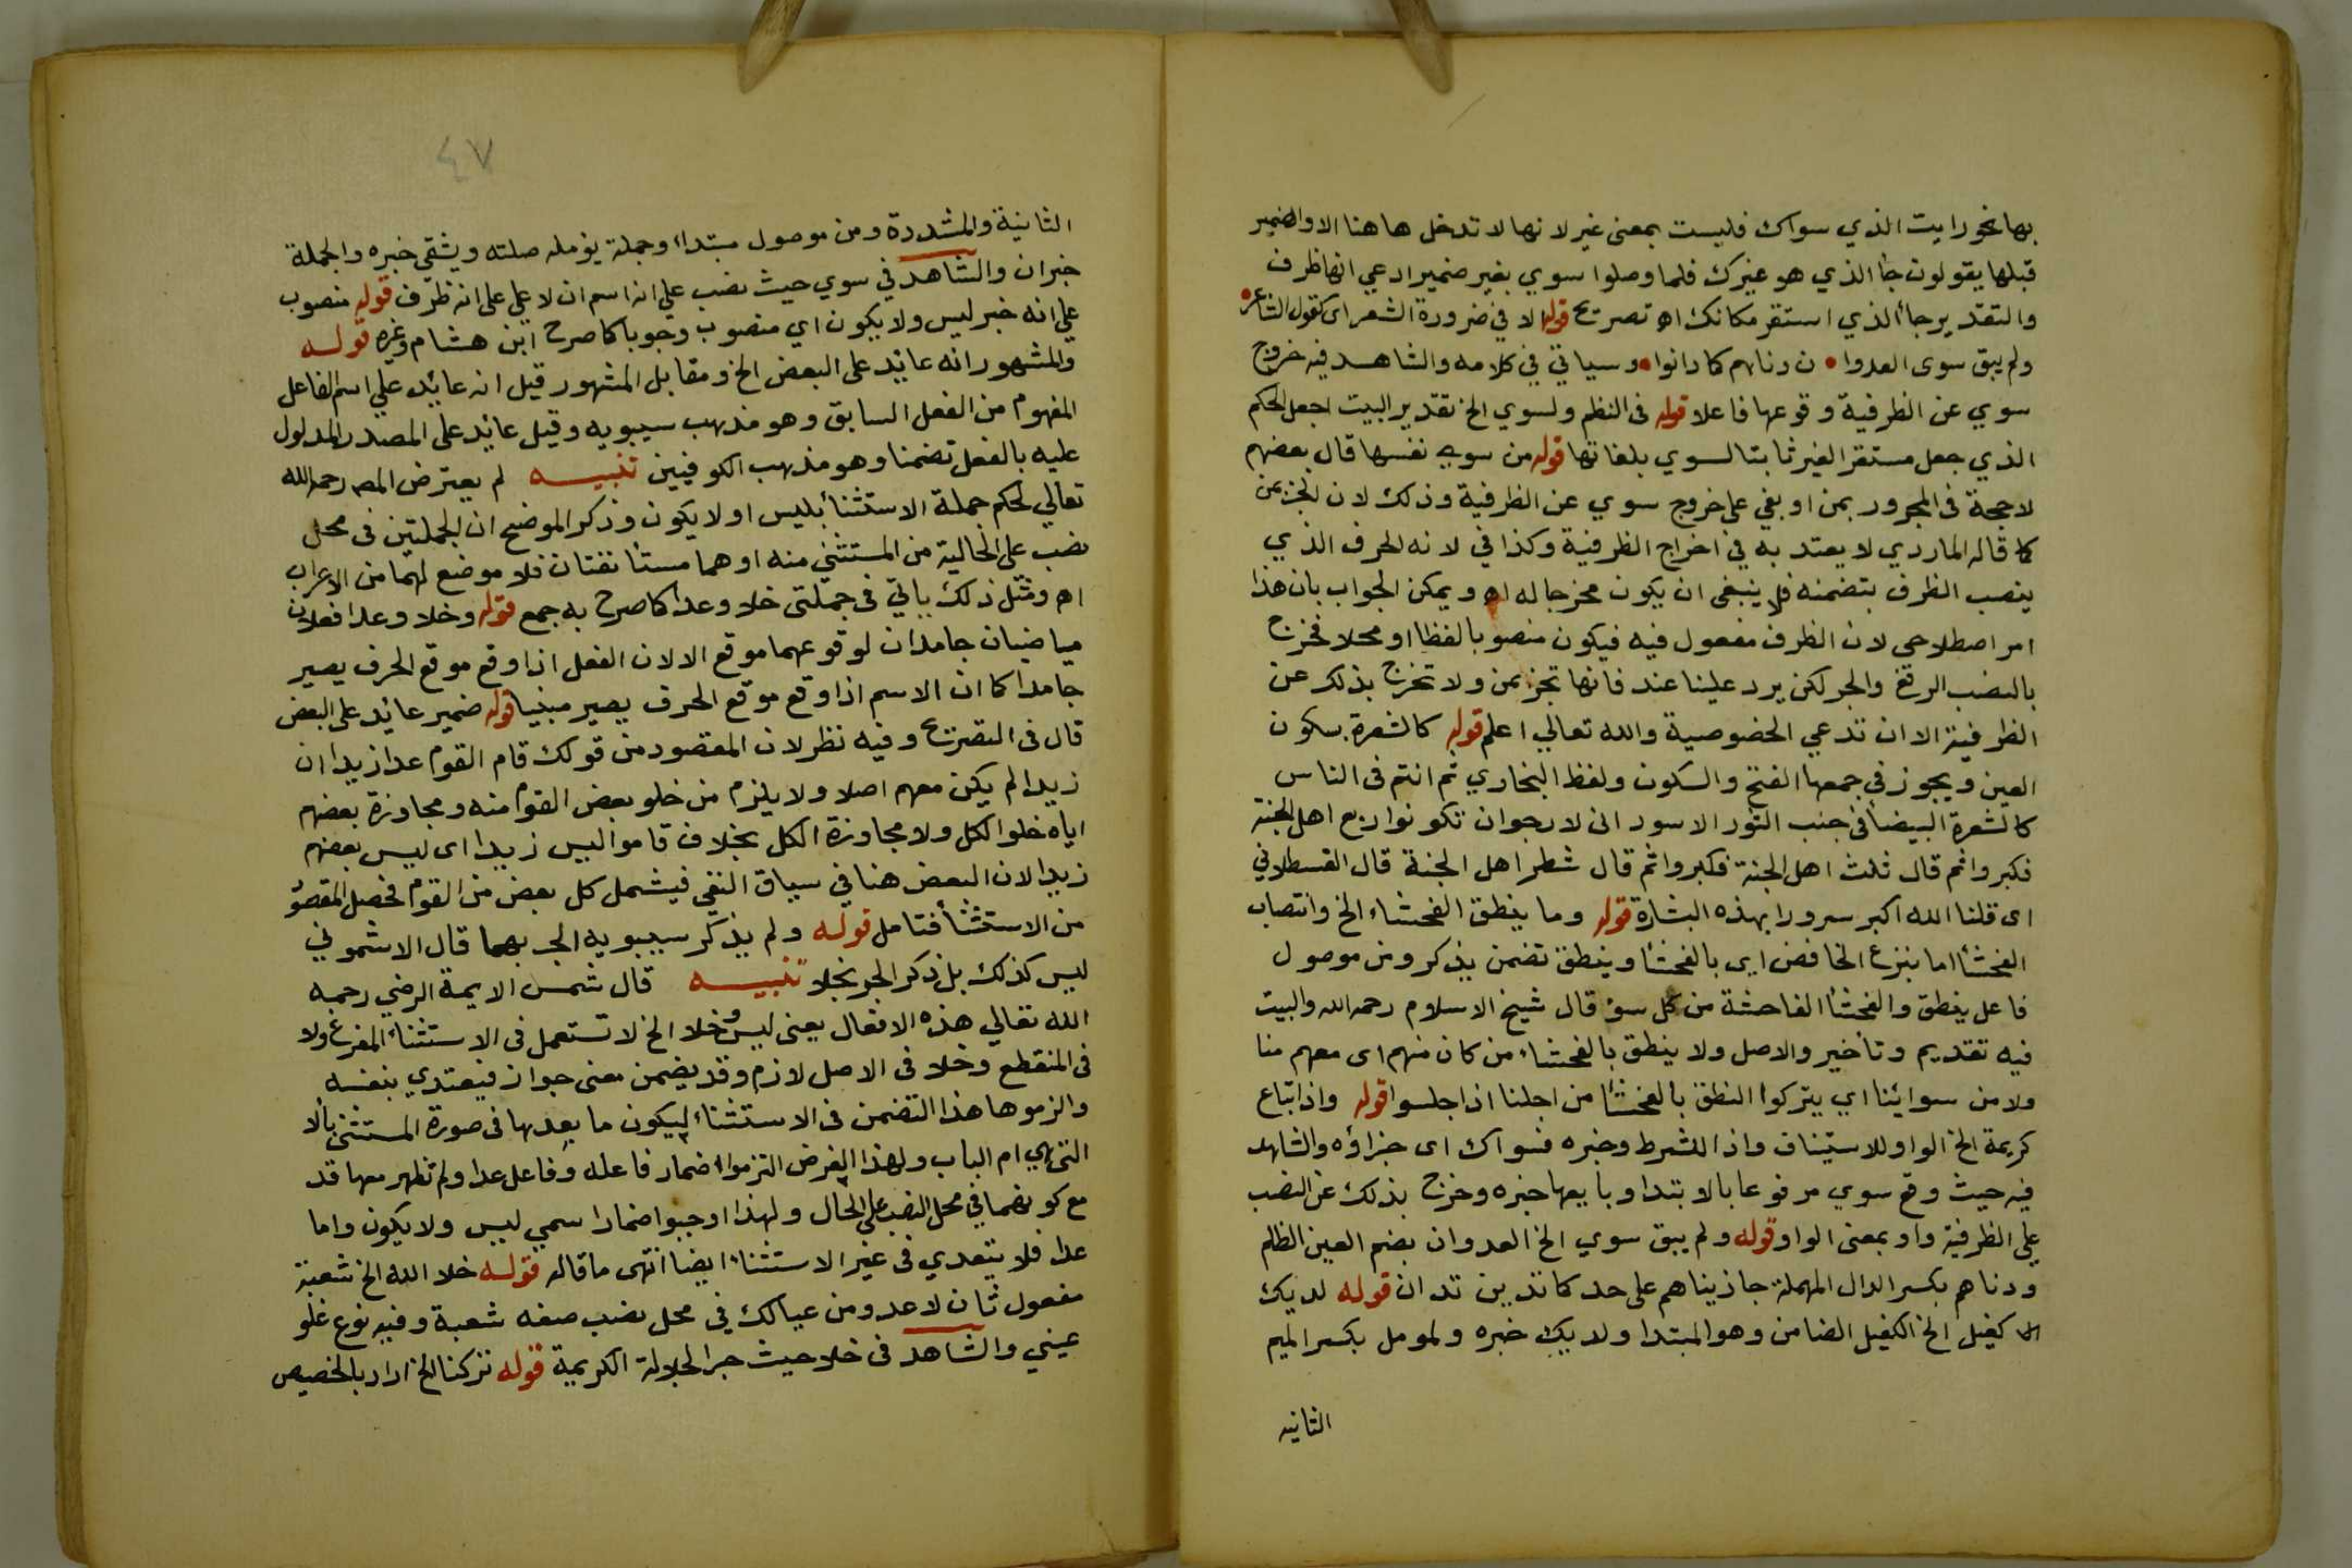 بها نحو رايت الذي سواك فليست بمعنى غير لانها لا تدخل هاهنا الا والضمير
قبلها يقولون جا الذي هو غيرك فلما وصلوا سوي بغير ضمير ادعي انها ظرف
والتقدير جاء الذي استقر مكانك اه تصريح قوله الا في ضرورة الشعر اى كقول الشاعر
ولم يبق سوى العدوا ن دناهم كما دانوا وسياتي في كلامه والشاهد فيه خروج
سوي عن الظرفية وقوعها فاعلا قوله فى النظم ولسوي الخ تقدير البيت اجعل الحكم
الذي جعل مستقر الغير ثابتا لسوي بلغاتها قوله من سوي نفسها قال بعضهم
لا حجة فى المجرور بمن او بفي على خروج سوي عن الظرفية وذلك لان الجر بمن
كما قاله الماردي لا يعتد به في اخراج الظرفية وكذا في لانه الحرف الذي
ينصب الظرف بتضمنه فلا ينبغى ان يكون مخرجا له اه ويمكن الجواب بان هذا
امر اصطلاحي لان الظرف مفعول فيه فيكون منصوبا لفظا او محلا فخرج
بالنصب الرفع والجر لكن يرد علينا عند فانها تجر بمن ولا تخرج بذلك عن
الظرفية الا ان تدعي الخصوصية والله تعالي اعلم قوله كالشعرة بسكون
العين ويجوز في جمعها الفتح والسكون ولفظ البخاري ثم انتم فى الناس
كالشعرة البيضا فى جنب الثور الاسود انى لارجوان تكونوا ربع اهل الجنة
فكبروا ثم قال ثلث اهل الجنة فكبروا ثم قال شطر اهل الجنة قال القسطلاني
اى قلنا الله اكبر سرورا بهذه البشارة قوله وما ينطق الفحشاء الخ وانتصاب
الفحشأ اما بنزع الخافض اي بالفحشا وينطق تضمن يذكر ومن موصول
فاعل ينطق والفحشأ الفاحشة من كل سؤ قال شيخ الاسلام رحمه الله والبيت
فيه تقديم وتأخير والاصل ولا ينطق بالفحشاء من كان منهم اى معهم منا
ولا من سوائنا اي يتركوا النطق بالفحشأ من اجلنا اذا جلسوا قوله واذا تباع
كريمة الخ الواو للاستيناف واذا للشرط وخبره فسواك اى جزاؤه والشاهد
فيه حيث وقع سوي مرفوعا بالابتدا وبايعها خبره وخرج بذلك عن النصب
علي الظرفية واو بمعنى الواو قوله ولم يبق سوي الخ العدوان بضم العين الظلم
ودناهم بكسر الدال المهملة جازيناهم على حد كما تدين تدان قوله لديك
كفيل الخ الكفيل الضامن وهو المبتدا ولديك خبره ولمومل بكسر الميم
الثانيه
٤٧
الثانية والمشددة ومن موصول مبتداء وجملة يؤمله صلته ويشقى خبره والجملة
خبران والشاهد في سوي حيث نصب على انه اسم ان لا علي على انه ظرف قوله منصوب
علي انه خبر ليس ولا يكون اي منصوب وجوبا كما صرح ابن هشام وغيره قوله
والمشهور انه عائد على البعض الخ ومقابل المشهور قيل انه عائد علي اسم الفاعل
المفهوم من الفعل السابق وهو مذهب سيبويه وقيل عائد على المصدر المدلول
عليه بالفعل تضمنا وهو مذهب الكوفيين تنبيه لم يعترض المصـ رحمه الله
تعالي لحكم جملة الاستثنأ بليس او لا يكون وذكر الموضح ان الجملتين فى محل
نصب على الحالية من المستثنى منه او هما مستأنفتان فلا موضع لهما من الاعراب
اه ومثل ذلك ياتي فى جملتى خلا وعدا كما صرح به جمع قوله وخلا وعدا فعلان
ماضيان جامدان لوقوعهما موقع الا لان الفعل اذا وقع موقع الحرف يصير
جامدا كما ان الاسم اذا وقع موقع الحرف يصير مبنيا قوله ضمير عائد على البعض
قال فى التصريح وفيه نظر لان المقصود من قولك قام القوم عدا زيدا ان
زيدا لم يكن معهم اصلا ولا يلزم من خلو بعض القوم منه ومجاوزة بعضهم
اياه خلوا لكل ولا مجاوزة الكل بخلاف قاموا ليس زيدا اى ليس بعضهم
زيدا لان البعض هنا في سياق النفي فيشمل كل بعض من القوم فحصل المقصود
من الاستثنأ فتامل قوله ولم يذكر سيبويه الجر بهما قال الاشموني
ليس كذلك بل ذكر الجر بخلا تنبيه قال شمس الايمة الرضي رحمه
الله تعالي هذه الافعال يعنى ليس وخلا الخ لا تستعمل فى الاستثناء المفرغ ولا
فى المنقطع وخلا فى الاصل لازم وقد يضمن معنى جواز فيعتدي بنفسه
والزموها هذا التضمن فى الاستثناء ليكون ما بعدها فى صورة المستثنى بالا
التي هي ام الباب ولهذا الغرض التزموا اضمار فاعله وفاعل عدا ولم تظهر معها قد
مع كونهما في محل النصب على الحال ولهذا اوجبوا اضمار اسمي ليس ولا يكون واما
عدا فلا يتعدي فى غير الاستثناء ايضا انتهى ما قاله قوله خلا الله الخ شعبة
مفعول ثان لاعد ومن عيالك في محل نصب صفه شعبة وفيه نوع غلو
عيني والشاهد فى خلا حيث جر الجلالة الكريمة قوله تركنا الخ اراد بالحضيض